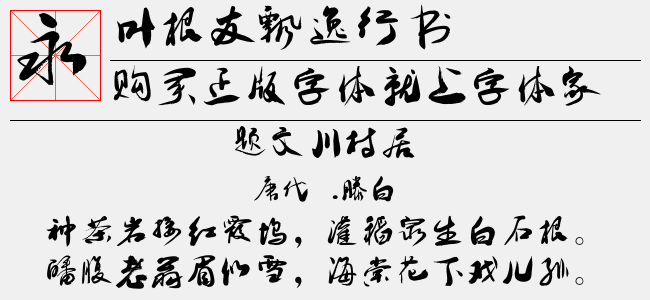 永
叶根友飘逸行书
购买正版字体就上字体家
题文川村居
唐代 .滕白
种茶岩接红霞坞，灌稻泉生白石根。
皤腹老翁眉似雪，海棠花下戏儿孙。